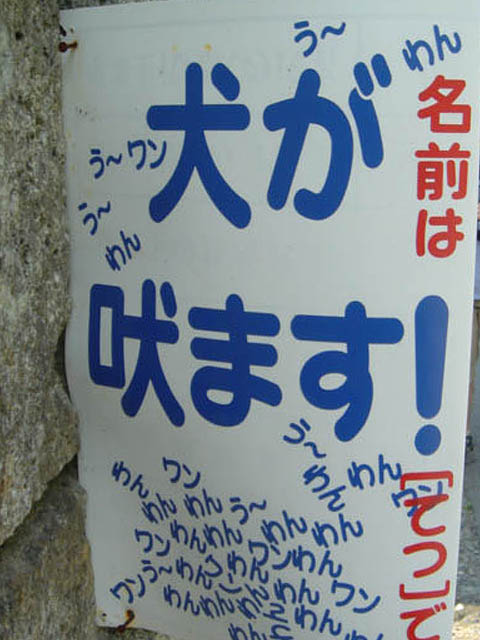 う〜
わん
犬が
う〜ワン
う〜
わん
吠ます!
名前は
[てつ]で
う〜
わん
わん
ワン
ワン
わん
わん
わん
う〜
わん
わん
わん
わん
ワン
ワン
わん
う〜
わん
わん
わん
ワン
ワン
わん
わん
わん
わん
わん
わん